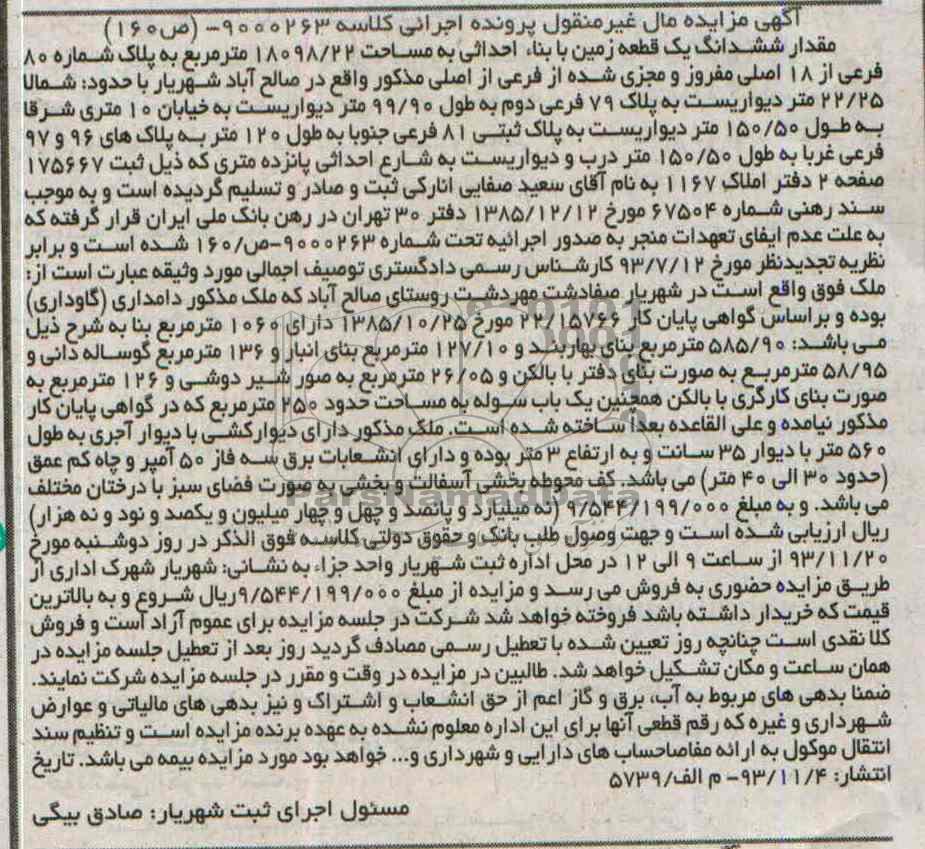 آگهی مزایده مال غیرمنقول پرونده اجرائی کلاسه ۹۰۰۰۲۶۳- (ص۱۶۰)
مقدار ششدانگ یک قطعه زمین با بناء احداثی به مساحت ۱۸۰۹۸/۲۲ مترمربع به پلاک شماره ۸۰
فرعی از ۱۸ اصلی مفروز و مجزی شده از فرعی از اصلی مذکور واقع در صالح آباد شهریار با حدود: شمالا
۲۲/۲۵ متر دیواریست به پلاک ۷۹ فرعی دوم به طول ۹۹/۹۰ متر دیواریست به خیابان ۱۰ متری شرقا
به طول ۱۵۰/۵۰ متر دیواریست به پلاک ثبتی ۸۱ فرعی جنوبا به طول ۱۲۰ متر به پلاک های ۹۶ و ۹۷
فرعی غربا به طول ۱۵۰/۵۰ متر درب و دیواریست به شارع احداثی پانزده متری که ذیل ثبت ۱۷۵۶۶۷
صفحه ۲ دفتر املاک ۱۱۶۷ به نام آقای سعید صفایی انارکی ثبت و صادر و تسلیم گردیده است و به موجب
سند رهنی شماره ۶۷۵۰۴ مورخ ۱۳۸۵/۱۲/۱۲ دفتر ۳۰ تهران در رهن بانک ملی ایران قرار گرفته که
به علت عدم ایفای تعهدات منجر به صدور اجرائیه تحت شماره ۹۰۰۰۲۶۳-ص/۱۶۰ شده است و برابر
نظریه تجدیدنظر مورخ ۹۳/۷/۱۲ کارشناس رسمی دادگستری توصیف اجمالی مورد وثیقه عبارت است از:
ملک فوق واقع است در شهریار صفادشت مهردشت روستای صالح آباد که ملک مذکور دامداری (گاوداری)
بوده و براساس گواهی پایان کار ۲۲/۱۵۷۶۶ مورخ ۱۳۸۵/۱۰/۲۵ دارای ۱۰۶۰ مترمربع بنا به شرح ذیل
می باشد: ۵۸۵/۹۰ مترمربع بنای بهاربند و ۱۲۷/۱۰ مترمربع بنای انبار و ۱۳۶ مترمربع گوساله دانی و
۵۸/۹۵ مترمربع به صورت بنای دفتر با بالکن و ۲۶/۰۵ مترمربع به صور شیر دوشی و ۱۲۶ مترمربع به
صورت بنای کارگری با بالکن همچنین یک باب سوله به مساحت حدود ۲۵۰ مترمربع که در گواهی پایان کار
مذکور نیامده و علی القاعده بعداً ساخته شده است. ملک مذکور دارای دیوارکشی با دیوار آجری به طول
۵۶۰ متر با دیوار ۳۵ سانت و به ارتفاع ۳ متر بوده و دارای انشعابات برق سه فاز ۵۰ آمپر و چاه کم عمق
(حدود ۳۰ الی ۴۰ متر) می باشد. کف محوطه بخشی آسفالت و بخشی به صورت فضای سبز با درختان مختلف
می باشد. و به مبلغ ۹/۵۴۴/۱۹۹/۰۰۰ (نه میلیارد و پانصد و چهل و چهار میلیون و یکصد و نود و نه هزار)
ریال ارزیابی شده است و جهت وصول طلب بانک و حقوق دولتی کلاسه فوق الذکر در روز دوشنبه مورخ
۹۳/۱۱/۲۰ از ساعت ۹ الی ۱۲ در محل اداره ثبت شهریار واحد جزاء به نشانی: شهریار شهرک اداری از
طریق مزایده حضوری به فروش می رسد و مزایده از مبلغ ۹/۵۴۴/۱۹۹/۰۰۰ریال شروع و به بالاترین
قیمت که خریدار داشته باشد فروخته خواهد شد شرکت در جلسه مزایده برای عموم آزاد است و فروش
کلا نقدی است چنانچه روز تعیین شده با تعطیل رسمی مصادف گردید روز بعد از تعطیل جلسه مزایده در
همان ساعت و مکان تشکیل خواهد شد. طالبین در مزایده در وقت و مقرر در جلسه مزایده شرکت نمایند.
ضمنا بدهی های مربوط به آب، برق و گاز اعم از حق انشعاب و اشتراک و نیز بدهی های مالیاتی و عوارض
شهرداری و غیره که رقم قطعی آنها برای این اداره معلوم نشده به عهده برنده مزایده است و تنظیم سند
انتقال موکول به ارائه مفاصاحساب های دارایی و شهرداری و... خواهد بود مورد مزایده بیمه می باشد. تاریخ
انتشار: ۹۳/۱۱/۴- م الف/۵۷۳۹
مسئول اجرای ثبت شهریار: صادق بیگی
ParsNamadData